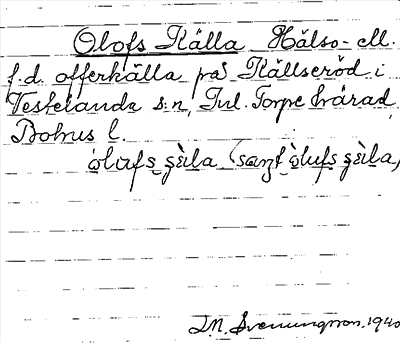 Olofs Källa Hälso- ell.
f.d. offerkälla på Källseröd i
Vestelanda s:n, Inl. Torpe härad,
Bohus l.
òlufs ʂèla (saŋt òlufs ʂèla,
J.M. Svenungsson. 1940